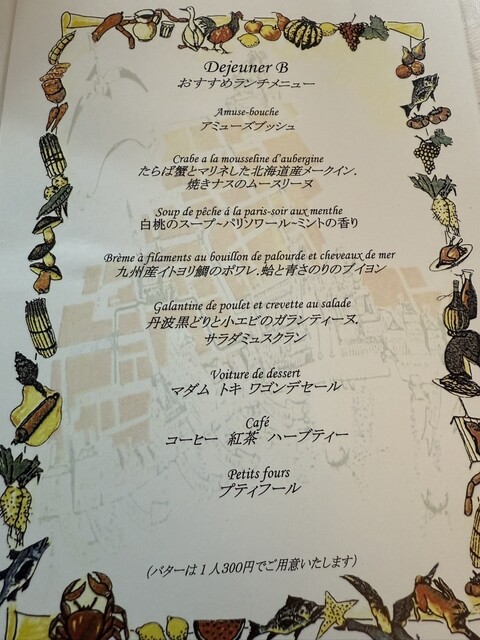 Dejeuner B
おすすめランチメニュー
Amuse-bouche
アミューズブッシュ
Crabe a la mousseline d'aubergine
たらば蟹とマリネした北海道産メークイン.
焼きナスのムースリーヌ
Soup de pêche á la paris-soir aux menthe
白桃のスープ~パリソワール~ミントの香り
Brème à filaments au bouillon de palourde et cheveaux de mer
九州産イトヨリ鯛のポワレ.蛤と青さのりのブイヨン
Galantine de poulet et crevette au salade
丹波黒どりと小エビのガランティーヌ.
サラダミュスクラン
Voiture de dessert
マダム トキ ワゴンデセール
Café
コーヒー 紅茶 ハーブティー
Petits fours
プティフール
(バターは1人300円でご用意いたします)